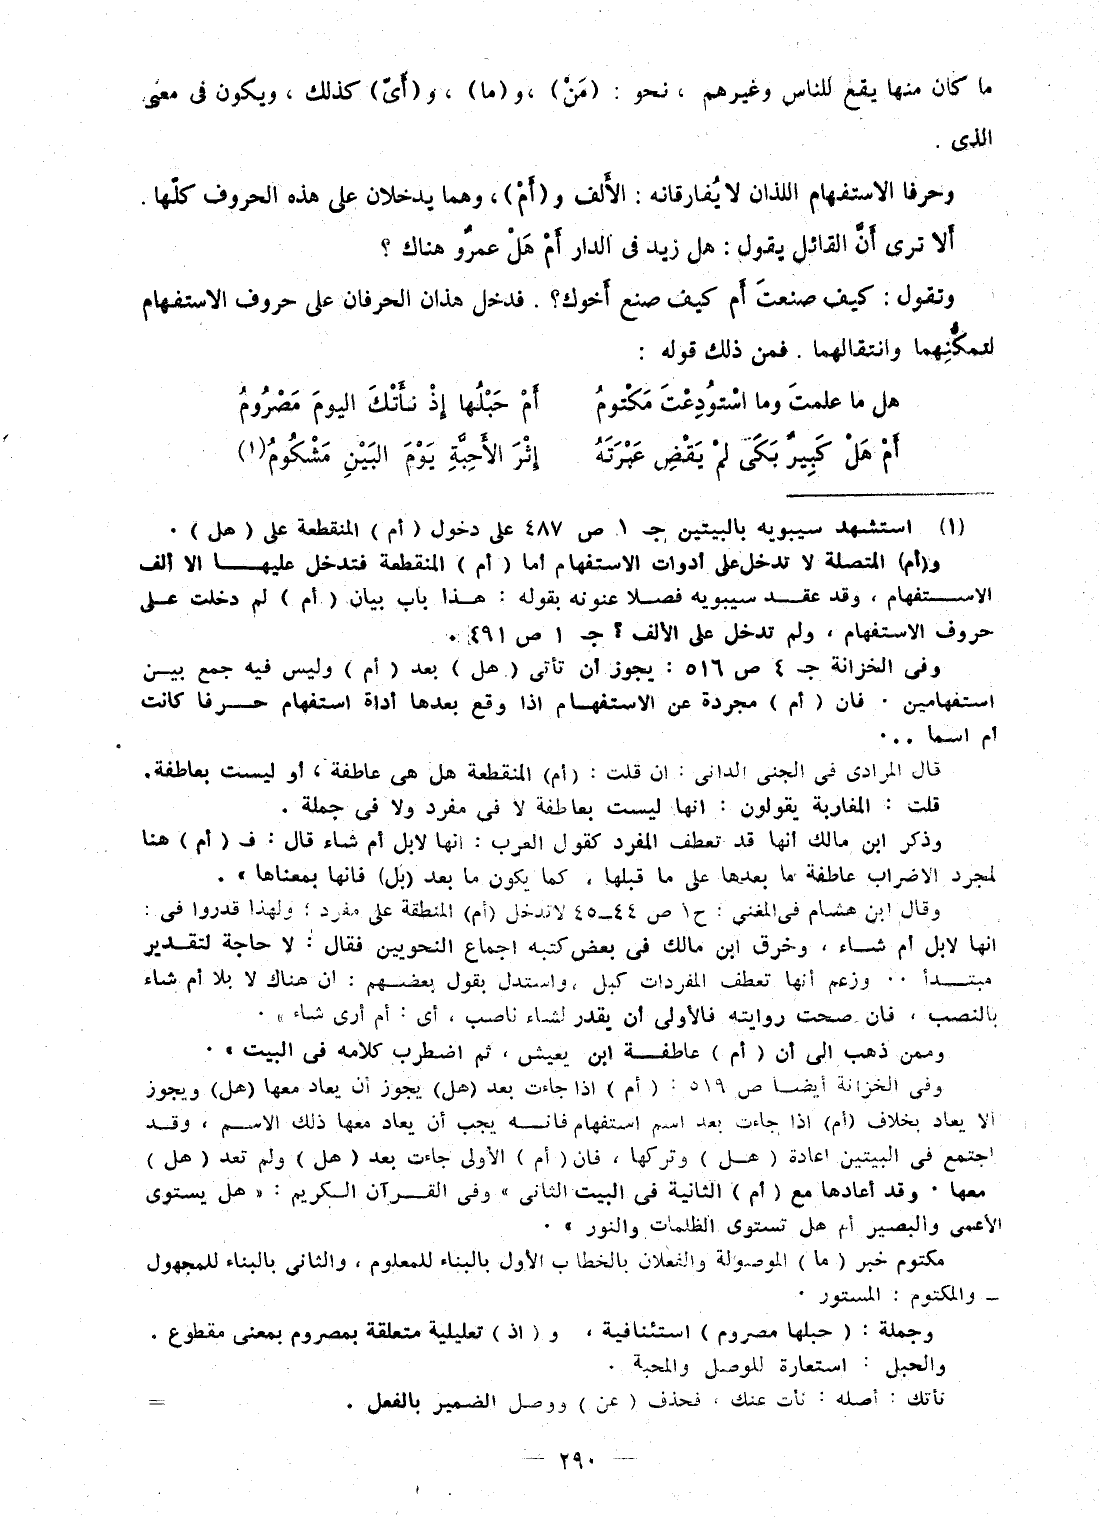 ما كان منها يقع للناس وغيرهم ، نحو : (مَنْ) ،و (ما) ، و (أَىّ) كذلك ، ويكون فى معنى
الذى .
وحرفا الاستفهام اللذان لا يُفارقانه : الأَلف و (أَمْ) ، وهما يدخلان على هذه الحروف كلّها .
أَلا ترى أَنَّ القائل يقول : هل زيد فى الدار أَمْ هَلْ عمرٌو هناك ؟
وتقول : كيف صنعتَ أَم كيف صنع أَخوك؟ . فدخل هذان الحرفان على حروف الاستفهام
لتمكُّنِهما وانتقالهما . فمن ذلك قوله :
هل ما علمتَ وما اسْتودِعْتَ مَكْتومُ أَمْ حَبْلُها إِذْ نأَتْكَ اليومَ مَصْرُومُ
أَمْ هَلْ كَبِيرٌ بَكَى لمْ يَقْضِ عَبْرَتَهُ إِثْرَ الأَحِبَّةِ يَوْمَ البَيْنِ مَشْكُومُ(١)
(١) استشهد سيبويه بالبيتين جـ ١ ص ٤٨٧ على دخول ( أم ) المنقطعة على ( هل ) ٠
و(أم) المتصلة لا تدخل على أدوات الاستفهام أما ( أم ) المنقطعة فتدخل عليهـــا الا ألف
الاســـتفهام ، وقد عقـــد سيبويه فصلا عنونه بقوله : هـذا باب بيان ( أم ) لم دخلت عـلى
حروف الاستفهام ، ولم تدخل على الألف ؟ جـ ١ ص ٤٩١ ٠
وفى الخزانة جـ ٤ ص ٥١٦ : يجوز أن تأتى ( هل ) بعد ( أم ) وليس فيه جمع بيـن
استفهامين ٠ فان ( أم ) مجردة عن الاستفهـام اذا وقع بعدها أداة استفهام حـرفا كانت
أم اسما ٠٠.
قال المرادى فى الجنى الدانى : ان قلت : (أم) المنقطعة هل هى عاطفة ، أو ليست بعاطفة.
قلت : المغاربة يقولون : انها ليست بعاطفة لا فى مفرد ولا فى جملة .
وذكر ابن مالك أنها قد تعطف المفرد كقول العرب : انها لابل أم شاء قال : فـ ( أم ) هنا
لمجرد الاضراب عاطفة ما بعدها على ما قبلها ، كما يكون ما بعد (بل) فانها بمعناها » .
وقال ابن هشام فى المغنى : ج١ ص ٤٤ــ٤٥ لاتدخل (أم) المنطقة على مفرد ؛ ولهذا قدروا فى :
انها لابل أم شـــاء ، وخرق ابن مالك فى بعض كتبه اجماع النحويين فقال : لا حاجة لتقـدير
مبتــــدأ ٠٠ وزعم أنها تعطف المفردات كبل ،واستدل بقول بعضـهم : ان هناك لا بلا أم شاء
بالنصب ، فان صحت روايته فالأولى أن يقدر لشاء ناصب ، أى : أم أرى شاء » ٠
وممن ذهب الى أن ( أم ) عاطفـــة ابن يعيش ، ثم اضطرب كلامه فى البيت » ٠
وفى الخزانة أيضـا ص ٥١٩ : ( أم ) اذا جاءت بعد (هل) يجوز أن يعاد معها (هل) ويجوز
ألا يعاد بخلاف (أم) اذا جاءت بعد اسم استفهام فانـــه يجب أن يعاد معها ذلك الاسـم ، وقـد
اجتمع فى البيتين اعادة ( هــل ) وتركها ، فان( أم ) الأولى جاءت بعد ( هل ) ولم تعد ( هل )
معها ٠ وقد أعادها مع ( أم ) الثانية فى البيت الثانى » وفى القـــرآن الـكريم : « هل يستوى
الأعمى والبصير أم هل تستوى الظلمات والنور » ٠
مكتوم خبر ( ما ) الموصولة والفعلان بالخطاب الأول بالبناء للمعلوم ، والثانى بالبناء للمجهول
ــ والمكتوم : المستور ٠
وجملة : ( حبلها مصروم ) استئنافية ، و ( اذ ) تعليلية متعلقة بمصروم بمعنى مقطوع .
والحبل : استعارة للوصل والمحبة ٠
نأتك : أصله : نأت عنك ، فحذف ( عن ) ووصل الضمير بالفعل . =
— ٢٩٠ —